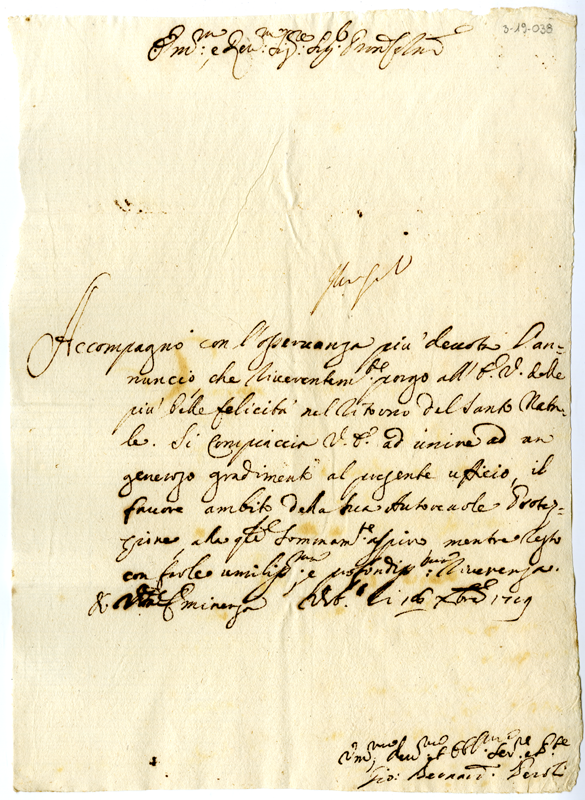 3-19-038
Em.mo e Rev.mo Sig.re Sig.r
Accompagno con l'osservanza più devota l'an-
nuncio, che riverentem.te porgo all'E.V. delle
più belle felicità nel ritorno del Santo Nata-
le. Si compiaccia V.E. ad unire ad un
generoso gradimento al presente ufficio, il
favore ambito della sua autorevole Protez-
zione alla q.le sommam.te aspiro mentre resto
con farle umiliss.ma e profondiss.ma riverenza.
Eminenza li 16 Xbre 1719
dev.mo et obb.mo Ser.re
Gio: